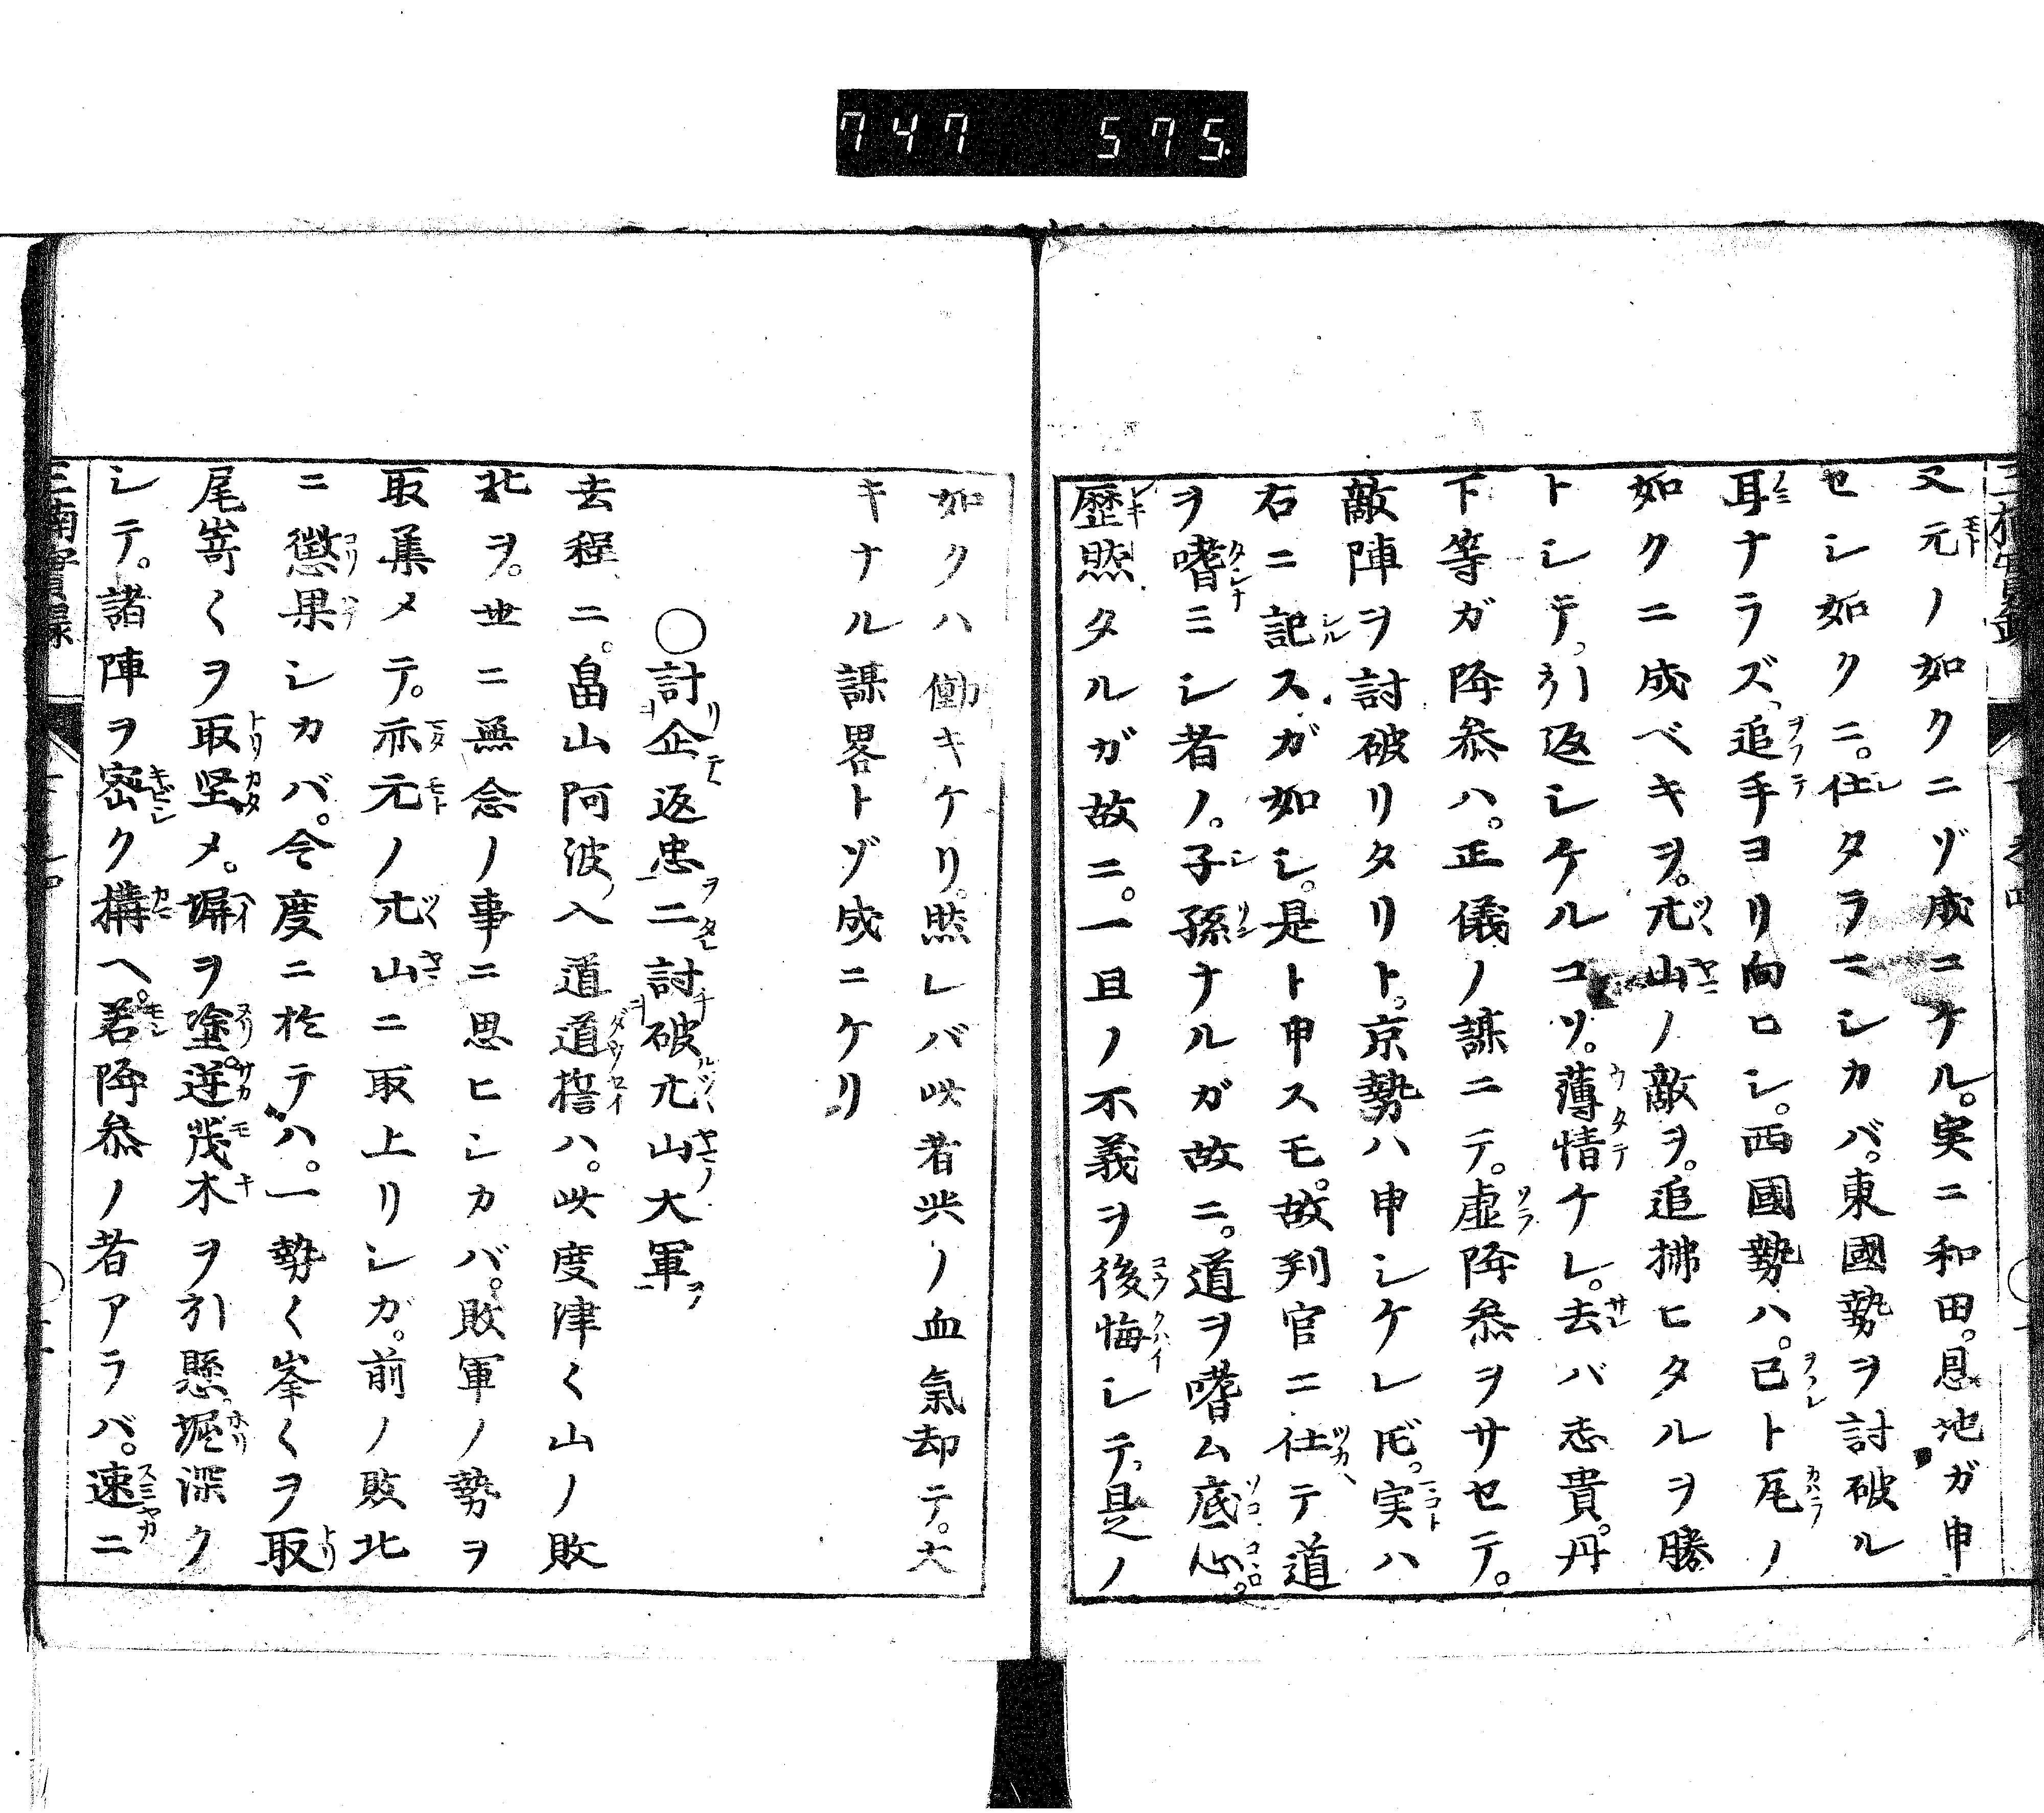 747 575
又元ノ如クニゾ成ニケル。実ニ和田。恩地ガ申
セシ如クニ。仕タラマシカバ。東國勢ヲ討破ル
耳ナラズ、追手ヨリ向ヒシ。西國勢ハ。已ト瓦ノ
如クニ成ベキヲ。朮山ノ敵ヲ。追拂ヒタルヲ勝
トシテ、引返シケルコソ。薄情ケレ。去バ志貴。丹
下等ガ降参ハ。正儀ノ謀ニテ。虚降参ヲサセテ。
敵陣ヲ討破リタリト。京勢ハ申シケレ𪜈。実ハ
右ニ記スガ如シ。是ト申スモ。故判官ニ仕テ道
ヲ嗜ミシ者ノ。子孫ナルガ故ニ。道ヲ嗜ム底心。
歴然タルガ故ニ。一且ノ不義ヲ後悔シテ。是ノ
如クハ働キケリ。然レバ此者共ノ血氣却テ。大
キナル謀畧トゾ成ニケリ
○討企返忠二討破朮山大軍
去程ニ。畠山阿波入道道誓ハ。此度津〱山ノ敗
北ヲ。世ニ無念ノ事ニ思ヒシカバ。敗軍ノ勢ヲ
取集メテ。亦元ノ朮山ニ取上リシガ。前ノ敗北
ニ懲果シカバ。今度ニ於テハ。一勢〱峯〱ヲ取
尾嵜〱ヲ取堅メ。塀ヲ塗。逆茂木ヲ引懸、堀深ク
シテ。諸陣ヲ密ク構ヘ。若降参ノ者アラバ。速ニ